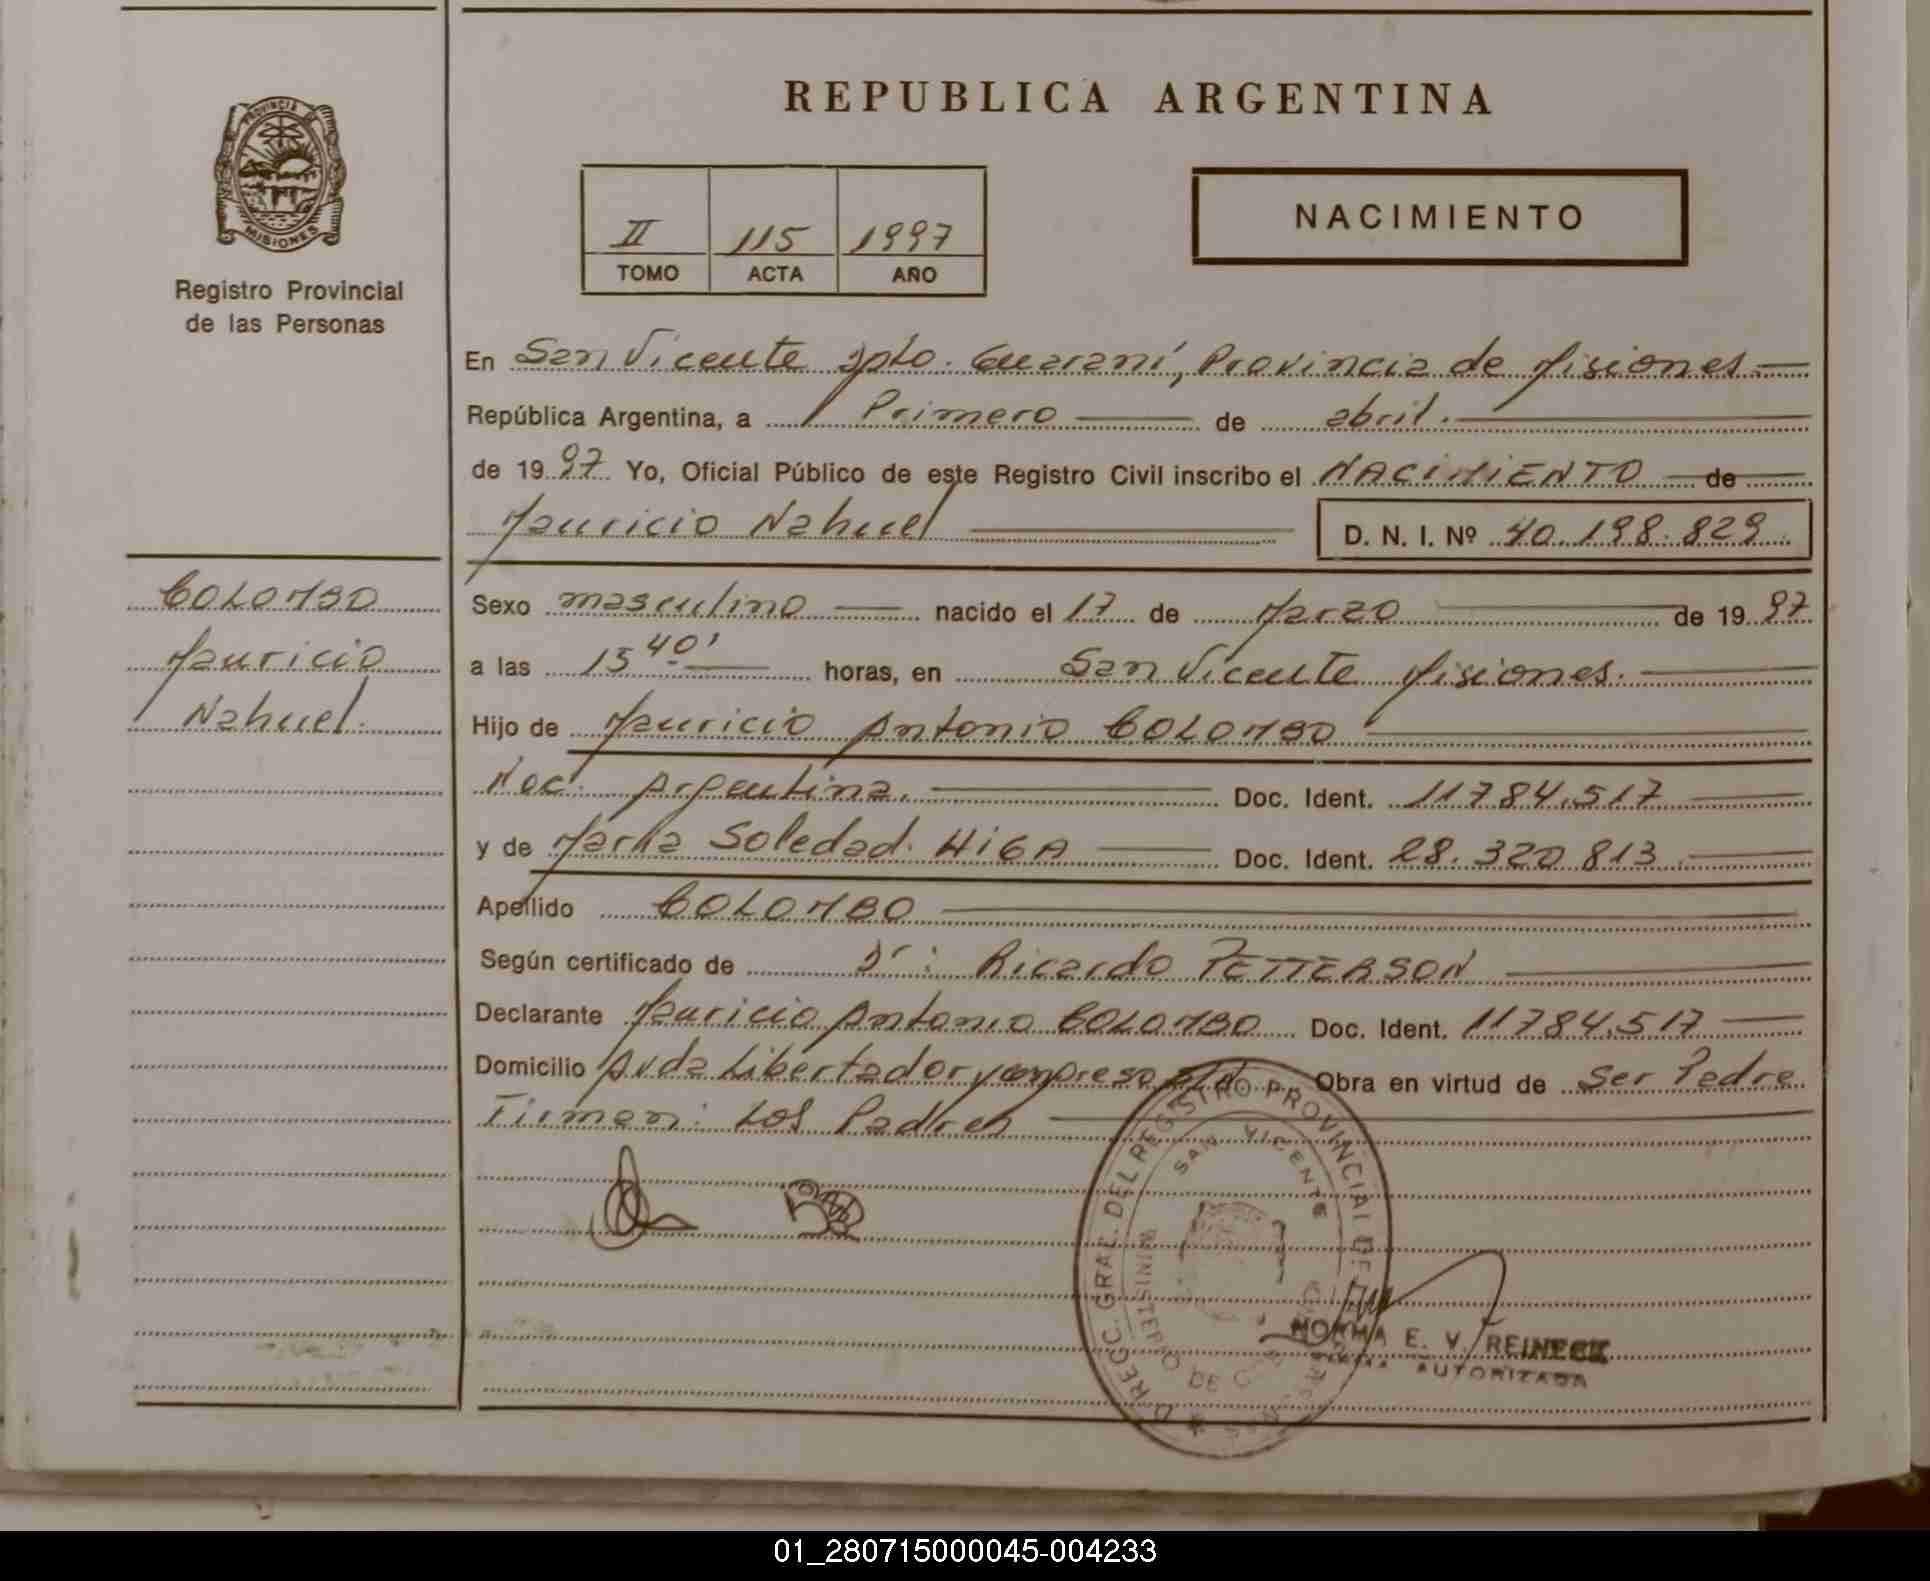 REPUBLICA ARGENTINA
PROVINCIA DE
MISIONES
Registro Provincial
de las Personas
II 115 1997
TOMO ACTA AÑO
NACIMIENTO
En San Vicente Dpto. Guaraní, Provincia de Misiones.
República Argentina, a Primero de abril.
de 1997 Yo, Oficial Público de este Registro Civil inscribo el NACIMIENTO de
Mauricio Nahuel D. N. I. Nº 40.198.829.
COLOMBO
Mauricio
Nahuel.
Sexo masculino nacido el 17 de Marzo de 1997
a las 15 40' horas, en San Vicente Misiones.
Hijo de Mauricio Antonio COLOMBO
Nac. Argentina. Doc. Ident. 11784.517
y de María Soledad HiGA Doc. Ident. 28.320 813
Apellido COLOMBO
Según certificado de Dr: Ricardo PETTERSON
Declarante Mauricio Antonio COLOMBO Doc. Ident. 11784.517
Domicilio Avda Libertador y congreso Obra en virtud de Ser Padre
Firman: Los Padres
DIRECC. GRAL. DEL REGISTRO PROVINCIAL DE
SAN VICENTE
MINISTERIO DE
NORMA E. V. REINECK
AUTORIZADA
01_280715000045-004233